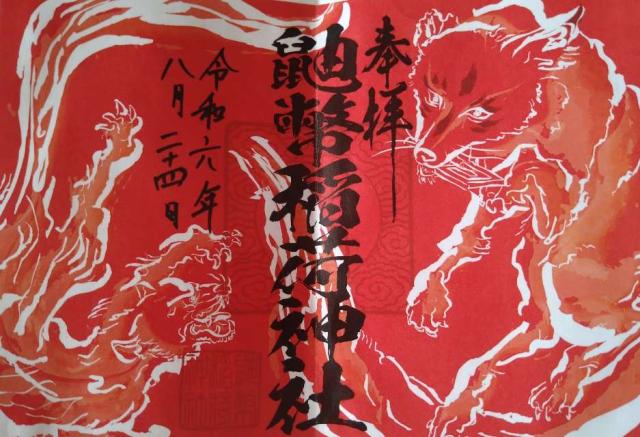 奉拝
鼬幣稲荷神社
令和六年
八月二十四日